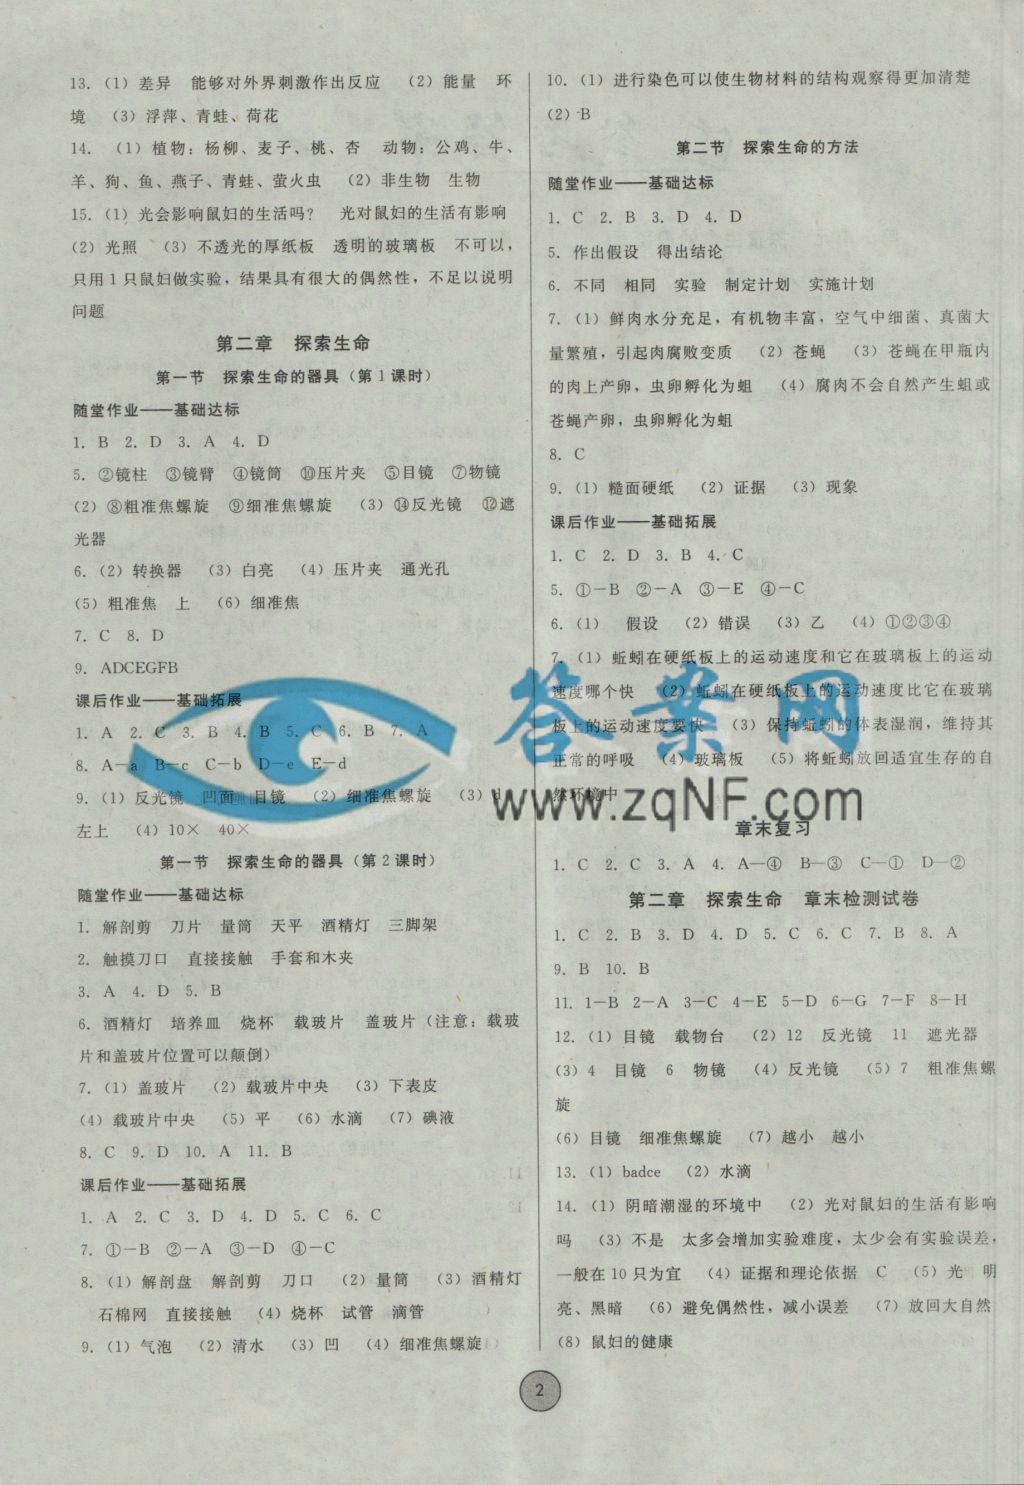 13.（1）差异　能够对外界刺激作出反应　（2）能量　环
境　（3）浮萍、青蛙、荷花
14.（1）植物：杨柳、麦子、桃、杏　动物：公鸡、牛、
羊、狗、鱼、燕子、青蛙、萤火虫　（2）非生物　生物
15.（1）光会影响鼠妇的生活吗？　光对鼠妇的生活有影响
（2）光照　（3）不透光的厚纸板　透明的玻璃板　不可以，
只用1只鼠妇做实验，结果具有很大的偶然性，不足以说明
问题
第二章　探索生命
第一节　探索生命的器具（第1课时）
随堂作业——基础达标
1. B　2. D　3. A　4. D
5. ②镜柱　③镜臂　④镜筒　⑩压片夹　⑤目镜　⑦物镜
（2）⑧粗准焦螺旋　⑨细准焦螺旋　（3）⑭反光镜　⑫遮
光器
6.（2）转换器　（3）白亮　（4）压片夹　通光孔
（5）粗准焦　上　（6）细准焦
7. C　8. D
9. ADCEGFB
课后作业——基础拓展
1. A　2. C　3. B　4. B　5. C　6. B　7. A
8. A—a　B—c　C—b　D—e　E—d
9.（1）反光镜　凹面　目镜　（2）细准焦螺旋　（3）d
左上　（4）10×　40×
第一节　探索生命的器具（第2课时）
随堂作业——基础达标
1. 解剖剪　刀片　量筒　天平　酒精灯　三脚架
2. 触摸刀口　直接接触　手套和木夹
3. A　4. D　5. B
6. 酒精灯　培养皿　烧杯　载玻片　盖玻片（注意：载玻
片和盖玻片位置可以颠倒）
7.（1）盖玻片　（2）载玻片中央　（3）下表皮
（4）载玻片中央　（5）平　（6）水滴　（7）碘液
8. C　9. D　10. A　11. B
课后作业——基础拓展
1. A　2. C　3. D　4. D　5. C　6. C
7. ①—B　②—A　③—D　④—C
8.（1）解剖盘　解剖剪　刀口　（2）量筒　（3）酒精灯
石棉网　直接接触　（4）烧杯　试管　滴管
9.（1）气泡　（2）清水　（3）凹　（4）细准焦螺旋
10.（1）进行染色可以使生物材料的结构观察得更加清楚
（2）B
第二节　探索生命的方法
随堂作业——基础达标
1. C　2. B　3. D　4. D
5. 作出假设　得出结论
6. 不同　相同　实验　制定计划　实施计划
7.（1）鲜肉水分充足，有机物丰富，空气中细菌、真菌大
量繁殖，引起肉腐败变质　（2）苍蝇　（3）苍蝇在甲瓶内
的肉上产卵，虫卵孵化为蛆　（4）腐肉不会自然产生蛆或
苍蝇产卵，虫卵孵化为蛆
8. C
9.（1）糙面硬纸　（2）证据　（3）现象
课后作业——基础拓展
1. C　2. D　3. B　4. C
5. ①—B　②—A　③—E　④—C
6.（1）　假设　（2）错误　（3）乙　（4）①②③④
7.（1）蚯蚓在硬纸板上的运动速度和它在玻璃板上的运动
速度哪个快　（2）蚯蚓在硬纸板上的运动速度比它在玻璃
板上的运动速度要快　（3）保持蚯蚓的体表湿润，维持其
正常的呼吸　（4）玻璃板　（5）将蚯蚓放回适宜生存的自
然环境中
章末复习
1. C　2. C　3. A　4. A—④　B—③　C—①　D—②
第二章　探索生命　章末检测试卷
1. C　2. B　3. D　4. D　5. C　6. C　7. B　8. A
9. B　10. B
11. 1—B　2—A　3—C　4—E　5—D　6—G　7—F　8—H
12.（1）目镜　载物台　（2）12　反光镜　11　遮光器
（3）4　目镜　6　物镜　（4）反光镜　（5）7　粗准焦螺
旋
（6）目镜　细准焦螺旋　（7）越小　越小
13.（1）badce　（2）水滴
14.（1）阴暗潮湿的环境中　（2）光对鼠妇的生活有影响
吗　（3）不是　太多会增加实验难度，太少会有实验误差，
一般在10只为宜　（4）证据和理论依据　C　（5）光　明
亮、黑暗　（6）避免偶然性，减小误差　（7）放回大自然
（8）鼠妇的健康
答案网
www.zqNF.com
2